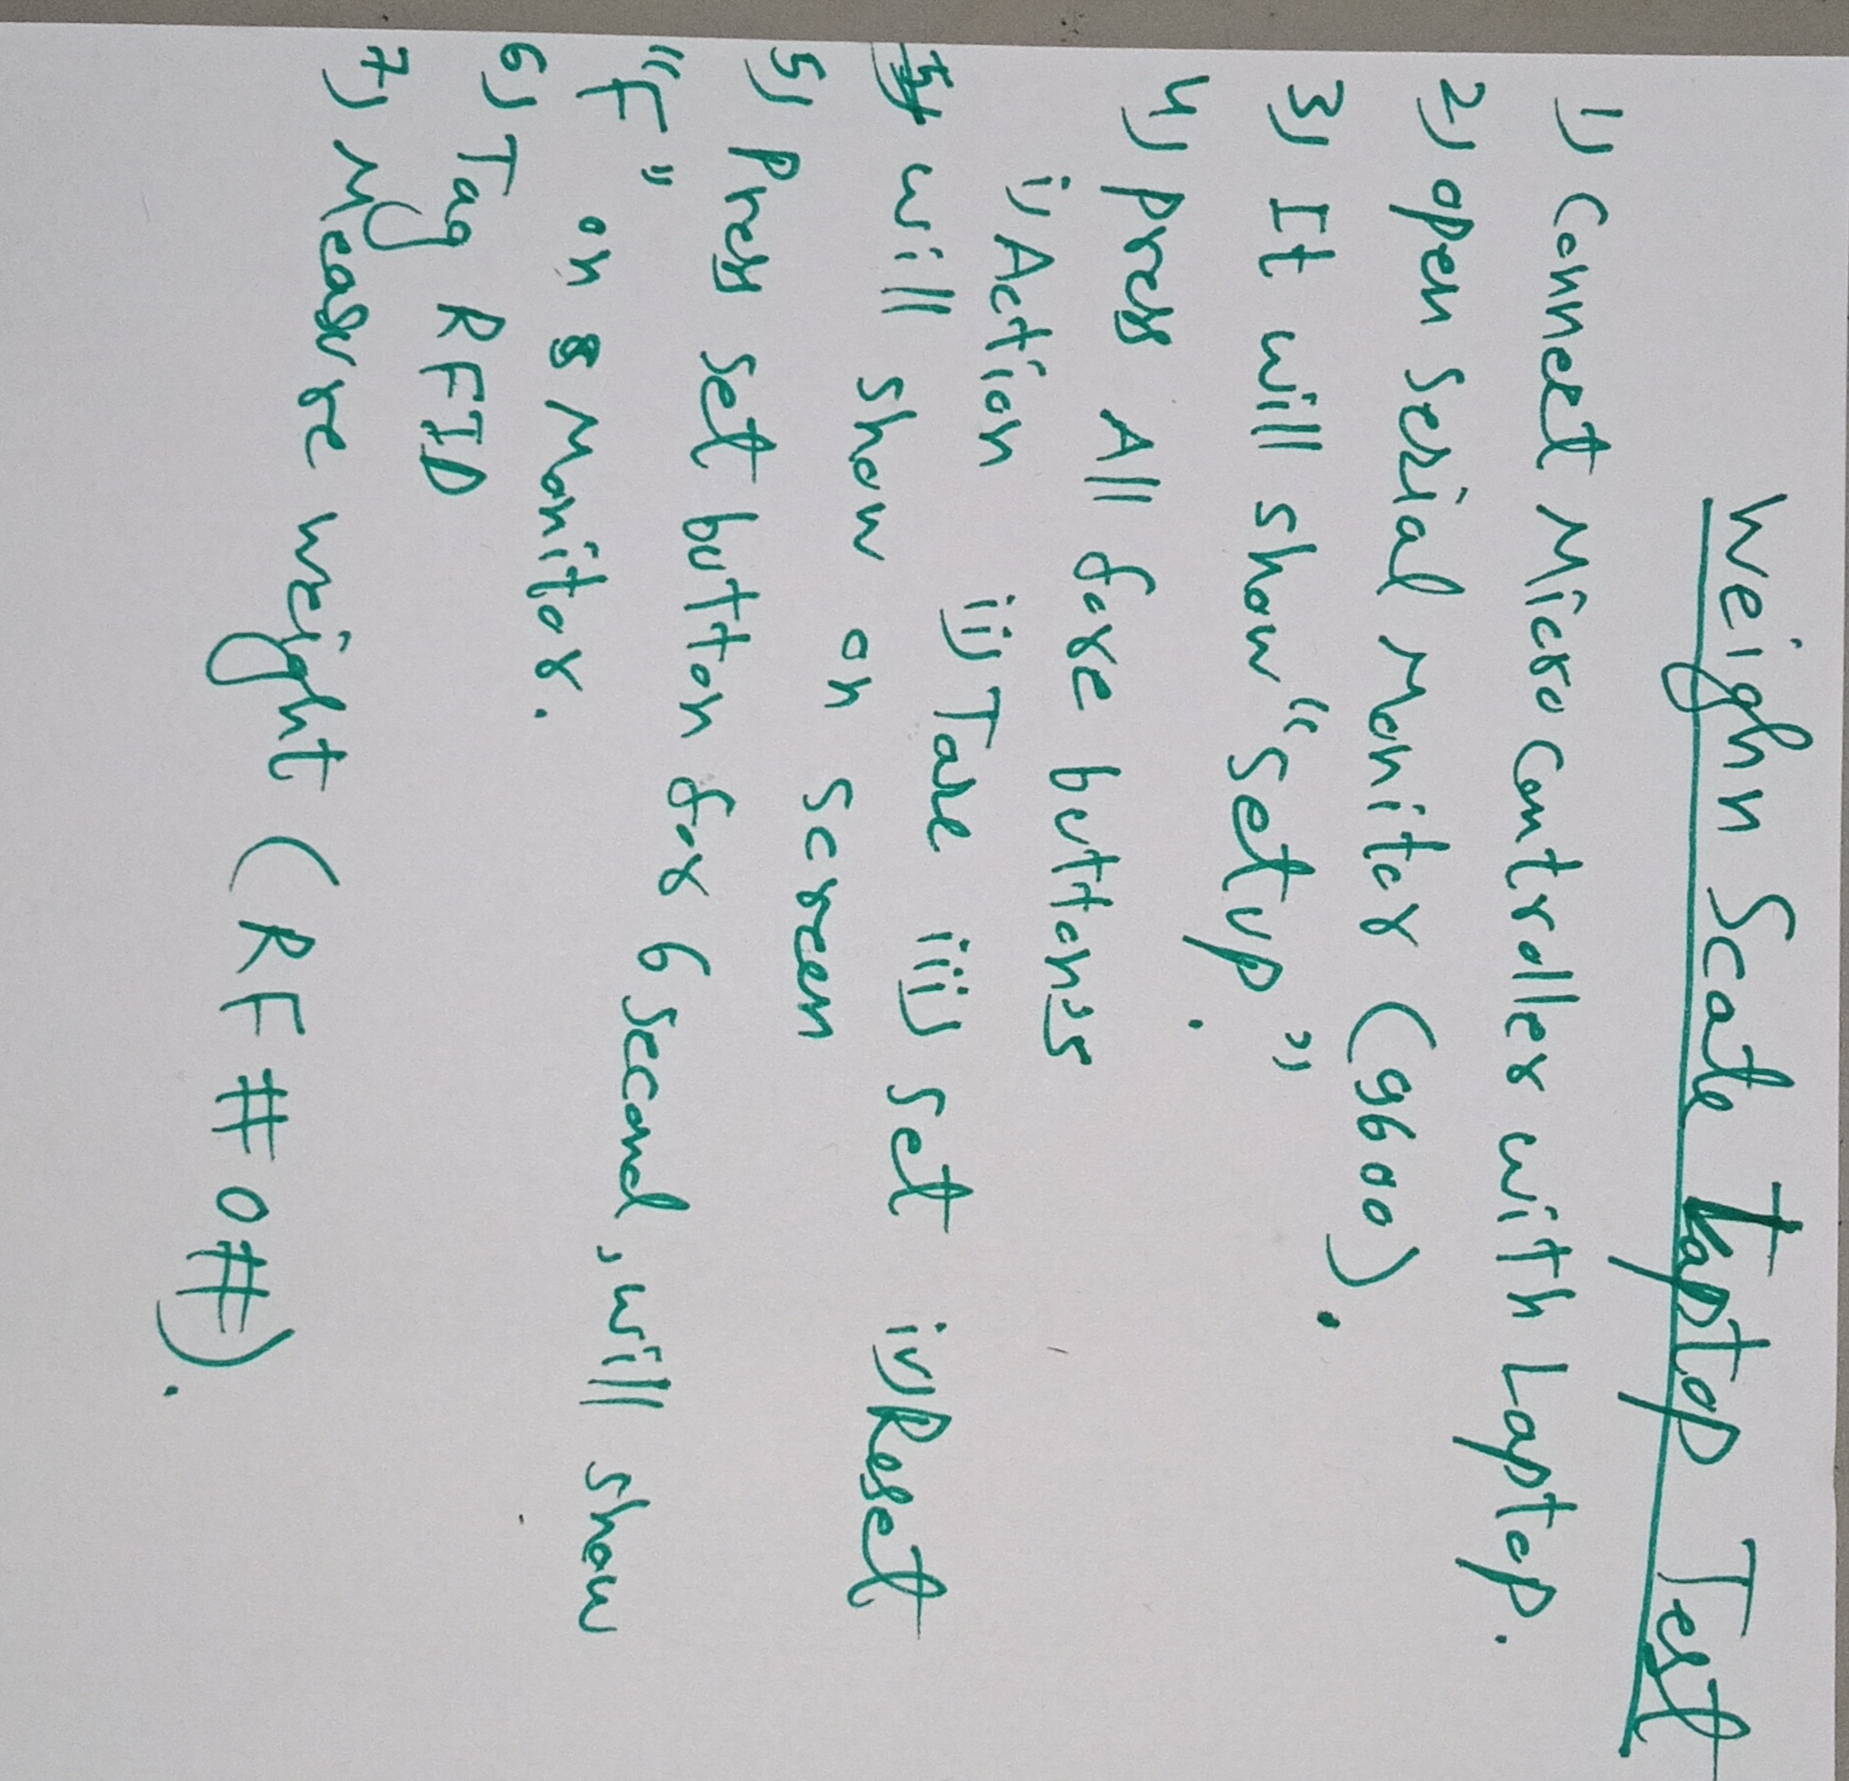 Weighn Scale Laptop Test
1) Connect Microcontroller with Laptop.
2) open Serial Moniter (9600).
3) It will show "Setup".
4) press All fore button's
i) Action ii) Tare iii) Set iv) Reset
will show on screen
5) Press set button for 6 second, will show
"F" on Monitor.
6) Tag RFID
7) Measure weight (RF#0#).